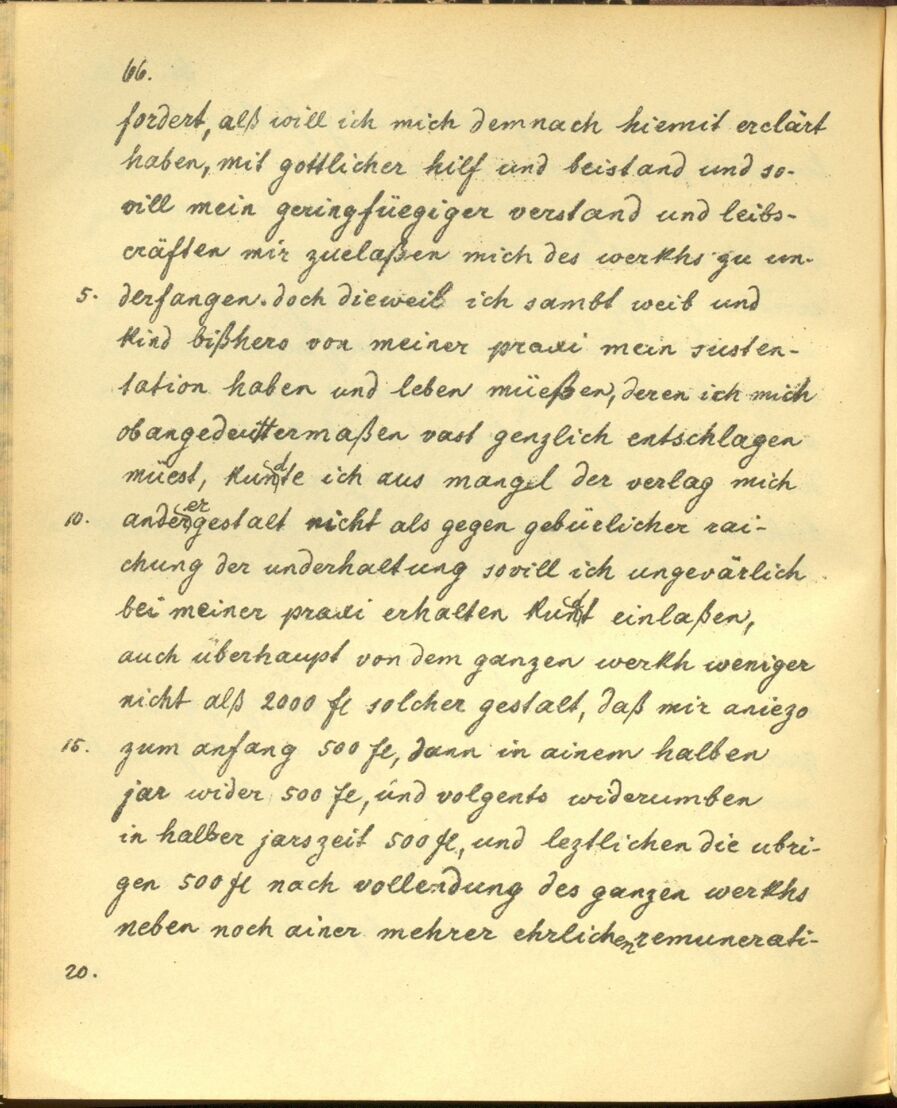 66.
fordert, alß will ich mich demnach hiemit erclärt
haben, mit gottlicher hilf und beistand und so-
vill mein geringfüegiger verstand und leibs-
cräften mir zuelaßen mich des werkhs zu un-
5. derfangen. doch dieweil ich sambt weib und
kind bißhero von meiner praxi mein susten-
tation haben und leben müeßen, deren ich mich
obangedeuttermaßen vast genzlich entschlagen
müest, kundte ich aus mangel der verlag mich
10. anderergestalt nicht als gegen gebüelicher rai-
chung der underhaltung sovill ich ungevärlich
bei meiner praxi erhalten kundt einlaßen,
auch überhaupt von dem ganzen werkh weniger
nicht alß 2000 fl solcher gestalt, daß mir aniezo
15. zum anfang 500 fl, dann in ainem halben
jar wider 500 fl, und volgents widerumben
in halber jarszeit 500 fl, und leztlichen die ubri-
gen 500 fl nach vollendung des ganzen werkhs
neben noch ainer mehrer ehrlichen remunerati-
20.